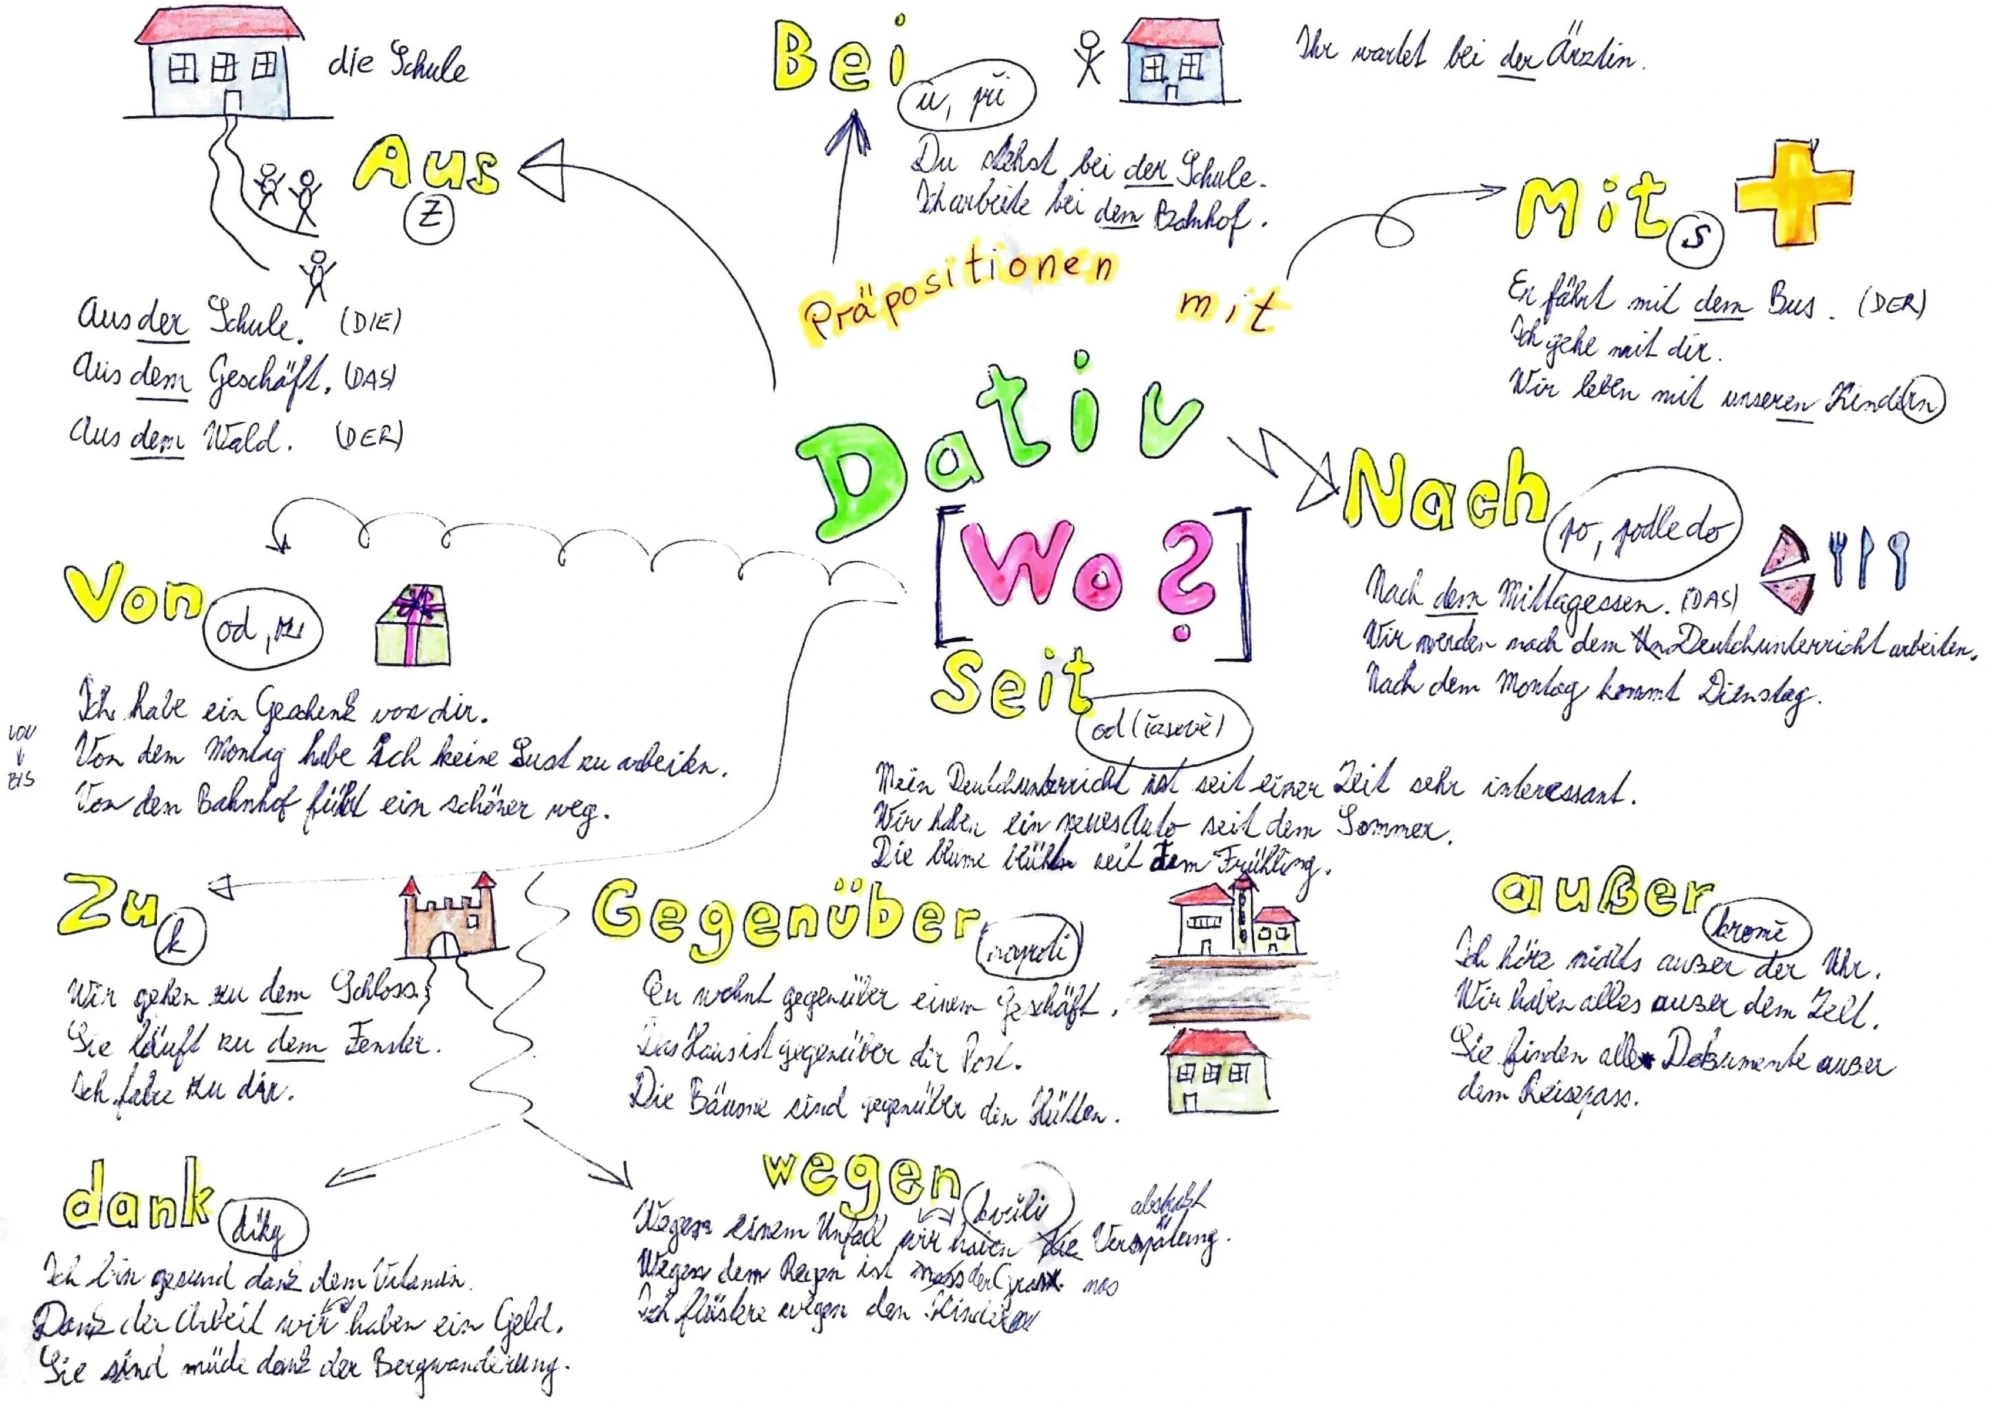 die Schule
Aus
z
Aus der Schule. (DIE)
Aus dem Geschäft. (DAS)
Aus dem Wald. (DER)
Bei
u, při
Ihr wartet bei der Ärztin.
Du stehst bei der Schule.
Ich arbeite bei dem Bahnhof.
Präpositionen mit
Dativ
[Wo?]
Mit
s
Er fährt mit dem Bus. (DER)
Ich gehe mit dir.
Wir leben mit unseren Kindern
Nach
po, podle do
Nach dem Mittagessen. (DAS)
Wir werden nach dem Deutchunterricht arbeiten.
Nach dem Montag kommt Dienstag.
Von
od, z
Ich habe ein Geschenk von dir.
VON
BIS
Von dem Montag habe ich keine Lust zu arbeiten.
Von dem Bahnhof führt ein schöner weg.
Seit
od (časově)
Mein Deutchunterricht ist seit einer Zeit sehr interessant.
Wir haben ein neues Auto seit dem Sommer.
Die blume blühen seit dem Frühling.
Zu
k
Wir gehen zu dem Schloss.
Sie läuft zu dem Fenster.
Ich fahre zu dir.
Gegenüber
naproti
Er wohnt gegenüber einem Geschäft.
Das Haus ist gegenüber der Post.
Die Bäume sind gegenüber den Hütten.
außer
kromě
Ich höre nichts außer der Uhr.
Wir haben alles außer dem Zelt.
Sie finden alle Dokumente außer
dem Reisepass.
dank
díky
Ich bin gesund dank dem Vitamin.
Dank der Arbeit wir haben ein Geld.
Sie sind müde dank der Bergwanderung.
wegen
kvůli
Wegen einem Unfall wir haben die Verspätung.
Wegen dem Regen ist nass der Gras. nas
Ich flüstere wegen den Kindern